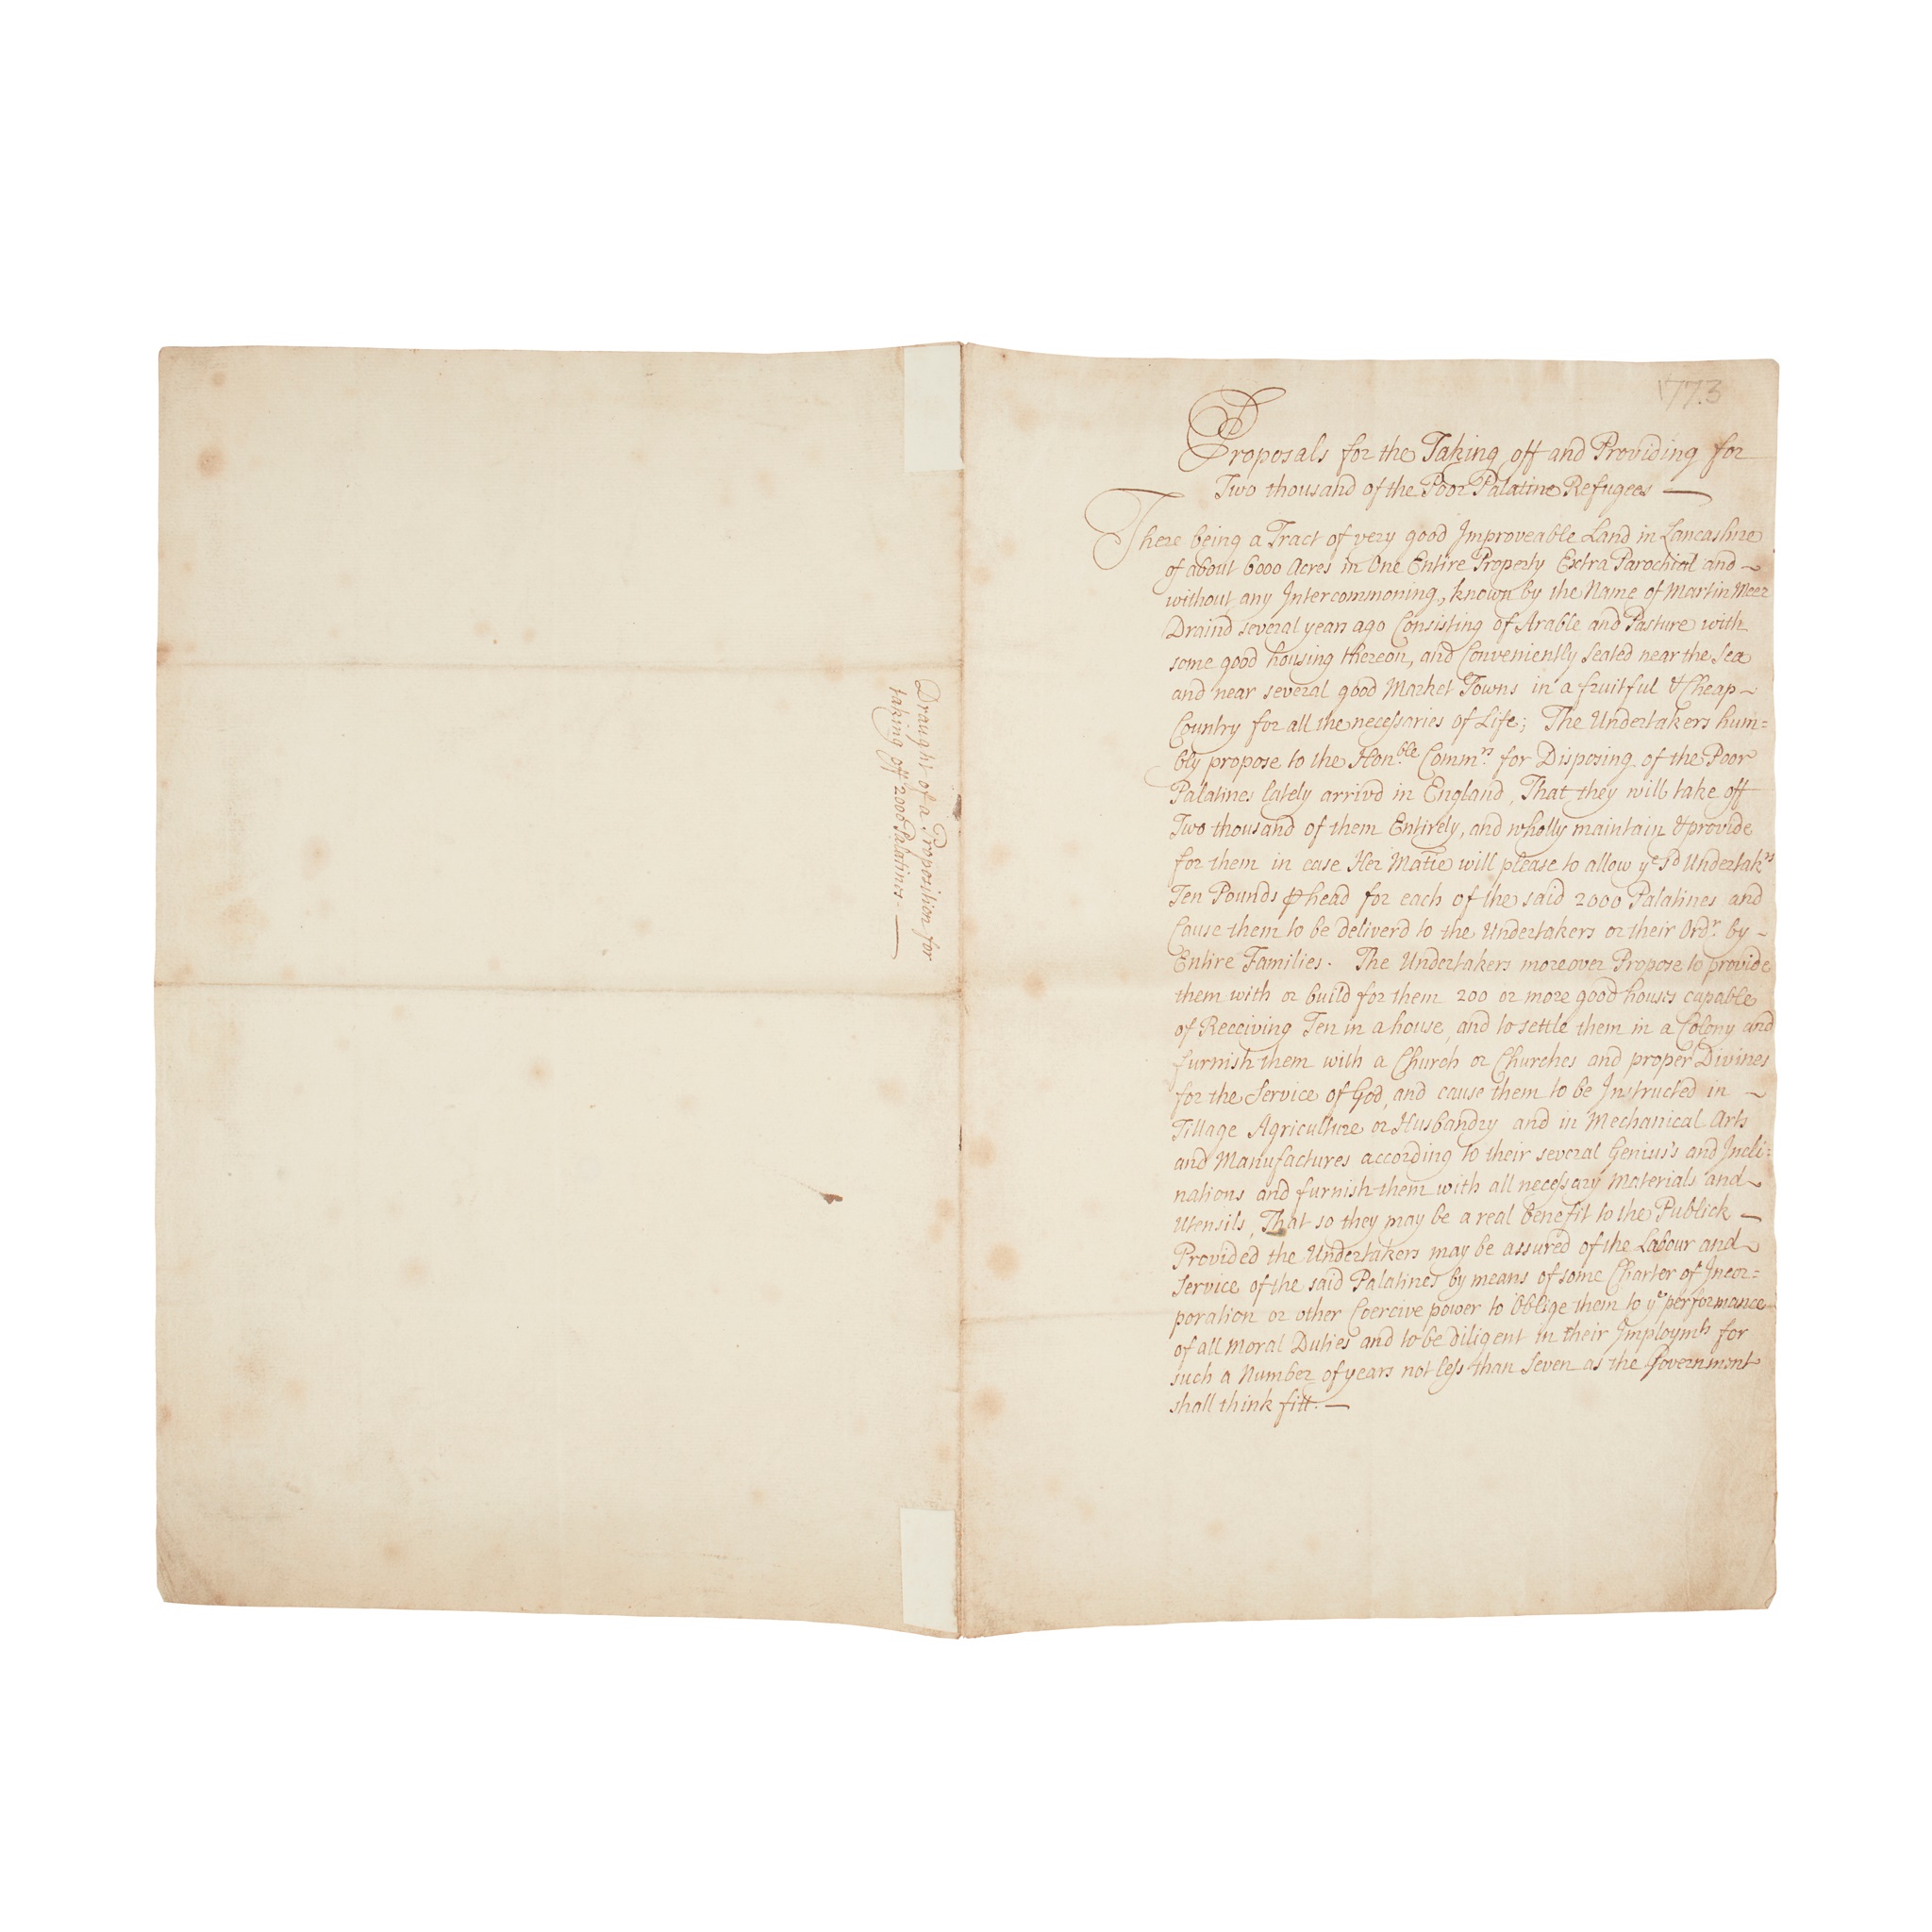 Draught of a Proposition for
taking off 2000 Palatines
1773
Proposals for the Taking off and Providing for
Two thousand of the Poor Palatine Refugees
There being a Tract of very good Improveable Land in Lancashire
of about 6000 Acres in One Entire Property Extra Parochial and
without any Intercommoning, known by the Name of Martin Meer
Draind several years ago Consisting of Arable and Pasture with
some good housing thereon, and Conveniently Seated near the Sea
and near several good Market Towns in a fruitful & Cheap
Country for all the necessaries of Life; The Undertakers hum=
bly propose to the Honble Commrs for Disposing of the Poor
Palatines lately arrivd in England, That they will take off
Two thousand of them Entirely, and wholly maintain & provide
for them in case Her Matie will please to allow ye sd Undertakrs
Ten Pounds ⅌ head for each of the said 2000 Palatines and
Cause them to be deliverd to the Undertakers or their Ordr. by
Entire Families. The Undertakers moreover Propose to provide
them with or build for them 200 or more good houses capable
of Receiving Ten in a house, and to settle them in a Colony and
furnish them with a Church or Churches and proper Divines
for the Service of God, and cause them to be Instructed in
Tillage Agriculture or Husbandry and in Mechanical Arts
and Manufactures according to their several Genius's and Incli=
nations and furnish them with all necessary Materials and
Utensils, That so they may be a real benefit to the Publick
Provided the Undertakers may be assured of the Labour and
Service of the said Palatines by means of some Charter of Incor=
poration or other Coercive power to Oblige them to ye performance
of all Moral Duties and to be diligent in their Imploymts for
such a Number of years not less than Seven as the Government
shall think fitt.